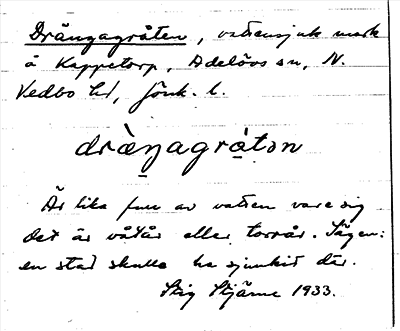 Drängagråten, vattensjuk mark
å Kappetorp, Adelövs sn, N.
Vedbo hd, Jönk. l.
drä̀ŋagrå̀tən
Är lika full av vatten vare sig
det är våtår eller torrår. Sägen:
en stad skulle ha sjunkit där.
Stig Stjärne 1933.